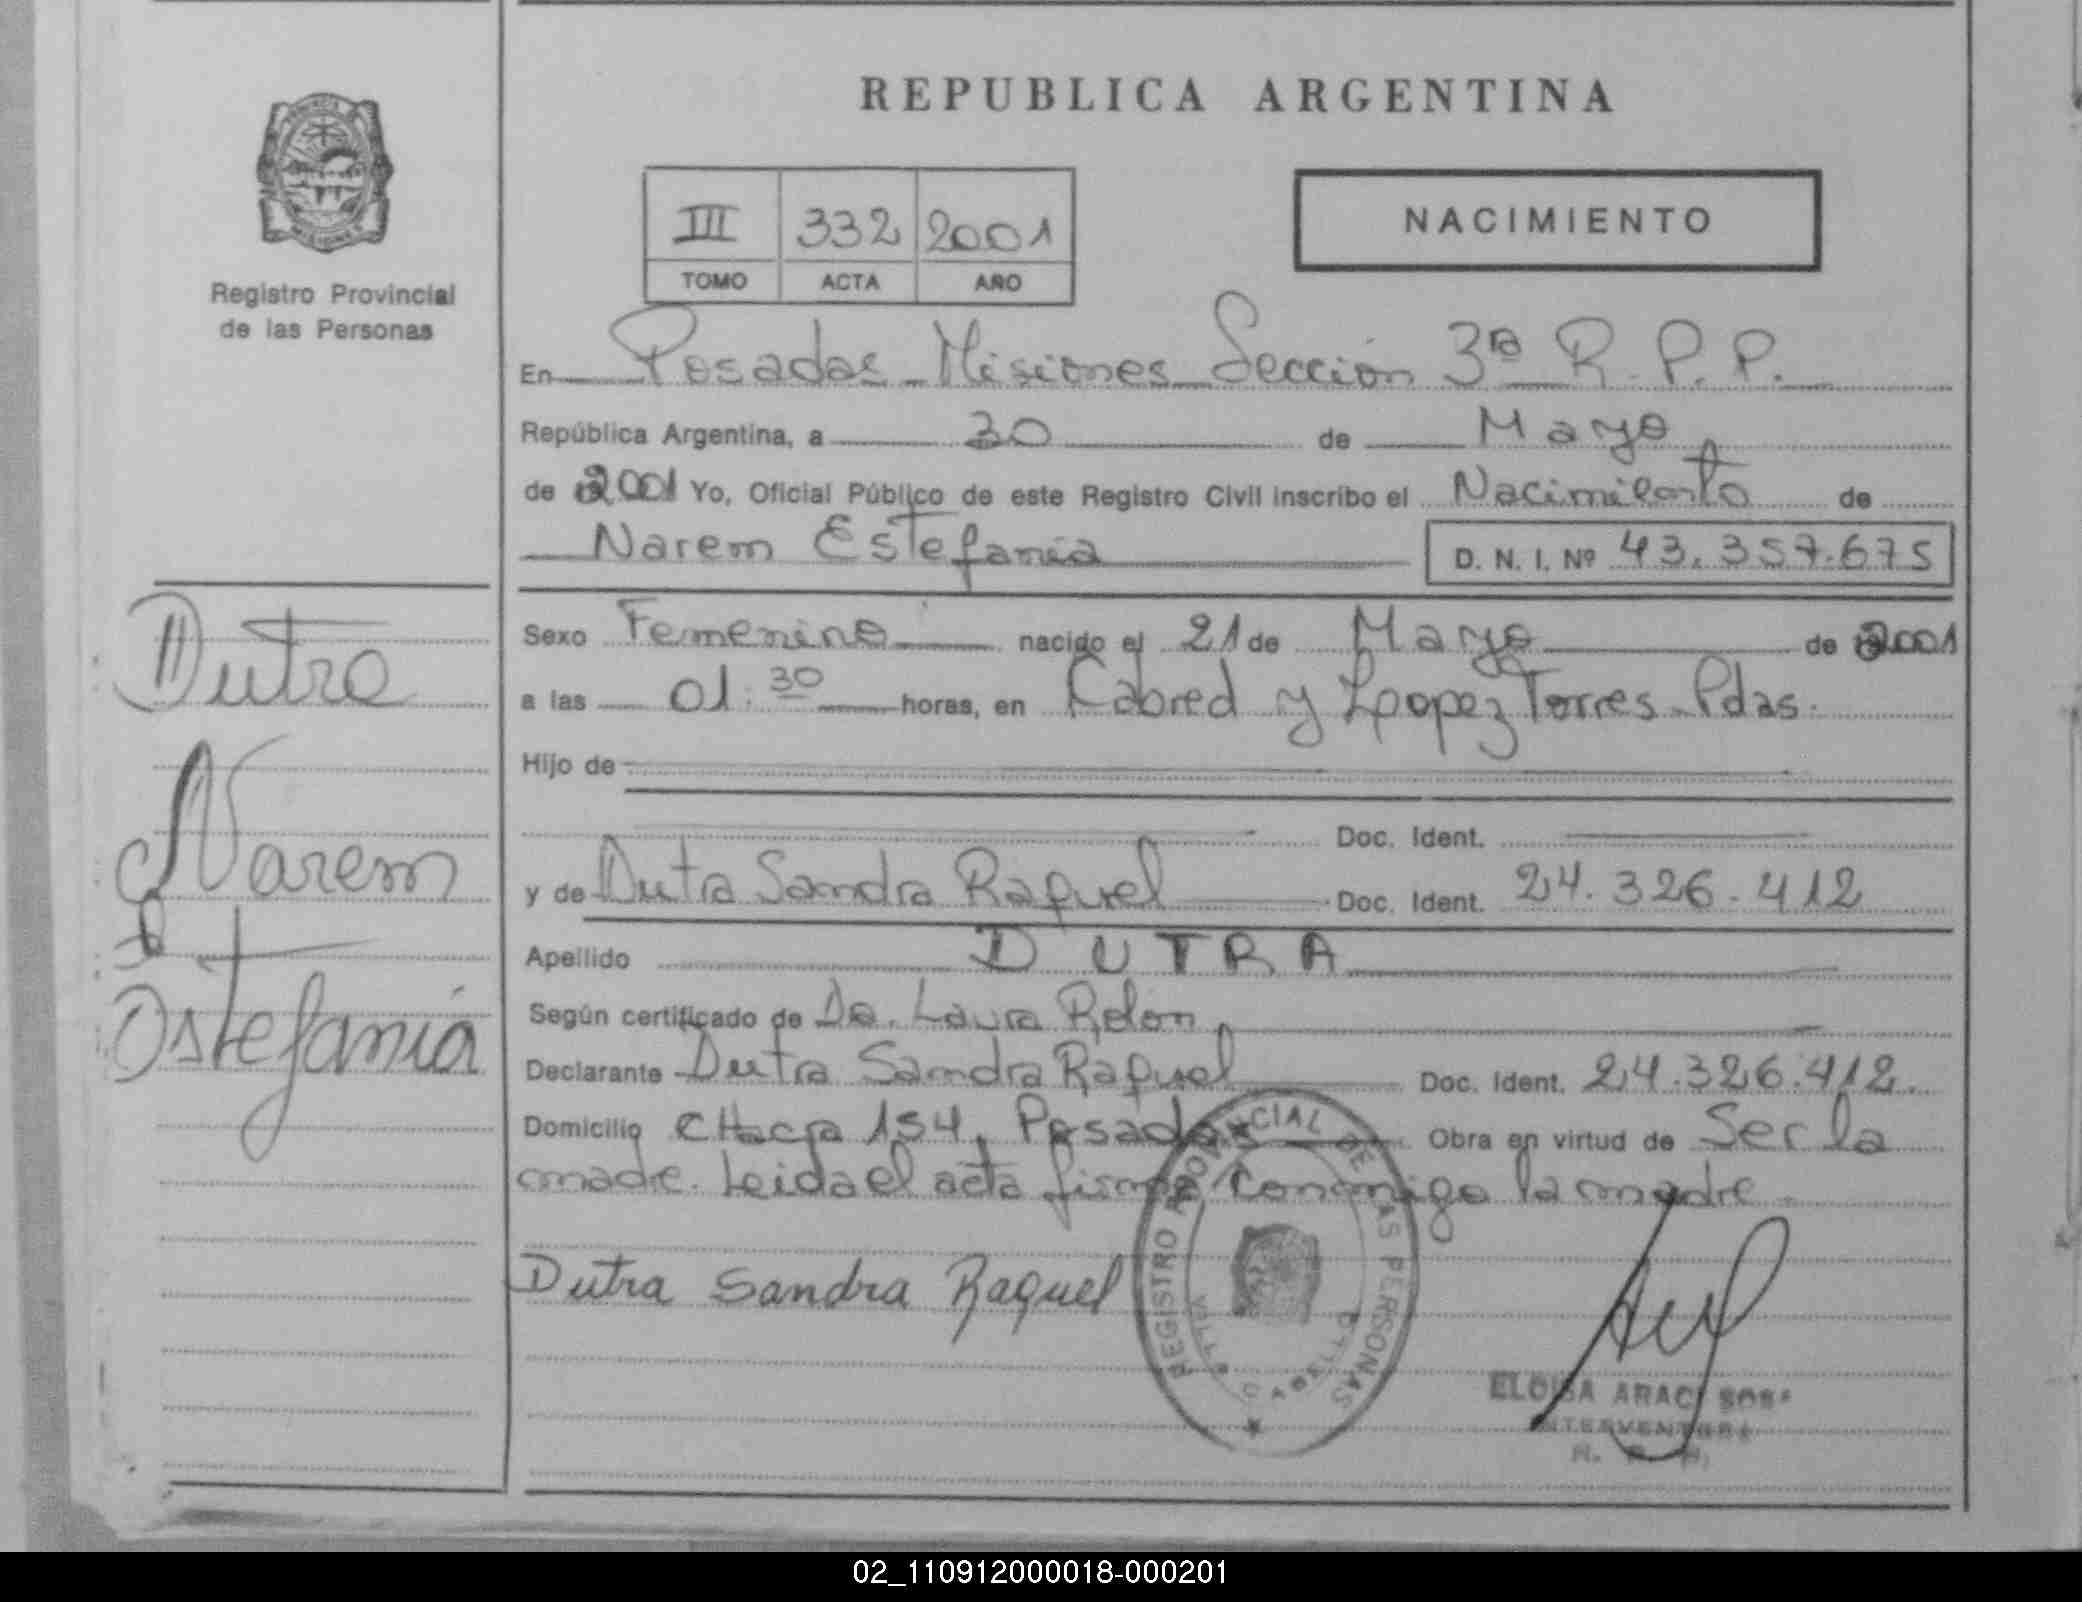 REPUBLICA ARGENTINA
III 332 2001
TOMO ACTA AÑO
NACIMIENTO
Registro Provincial
de las Personas
En Posadas Misiones Sección 3ra R.P.P.
República Argentina, a 30 de Mayo
de 2001 Yo, Oficial Público de este Registro Civil inscribo el Nacimiento de
Narem Estefania
D. N. I. Nº 43.357.675
Dutra
Narem
Estefania
Sexo Femenino nacido el 21 de Mayo de 2001
a las 01:30 horas, en Cabred y Lopez Torres Pdas.
Hijo de
Doc. Ident.
y de Dutra Sandra Raquel Doc. Ident. 24.326.412
Apellido DUTRA
Según certificado de Da. Laura Relon
Declarante Dutra Sandra Raquel Doc. Ident. 24.326.412.
Domicilio CHacra 154, Posadas Obra en virtud de Ser la
madre. Leida el acta firma conmigo la madre.
Dutra Sandra Raquel
REGISTRO PROVINCIAL DE LAS PERSONAS
ELOISA
INTERVENTORA
02_110912000018-000201